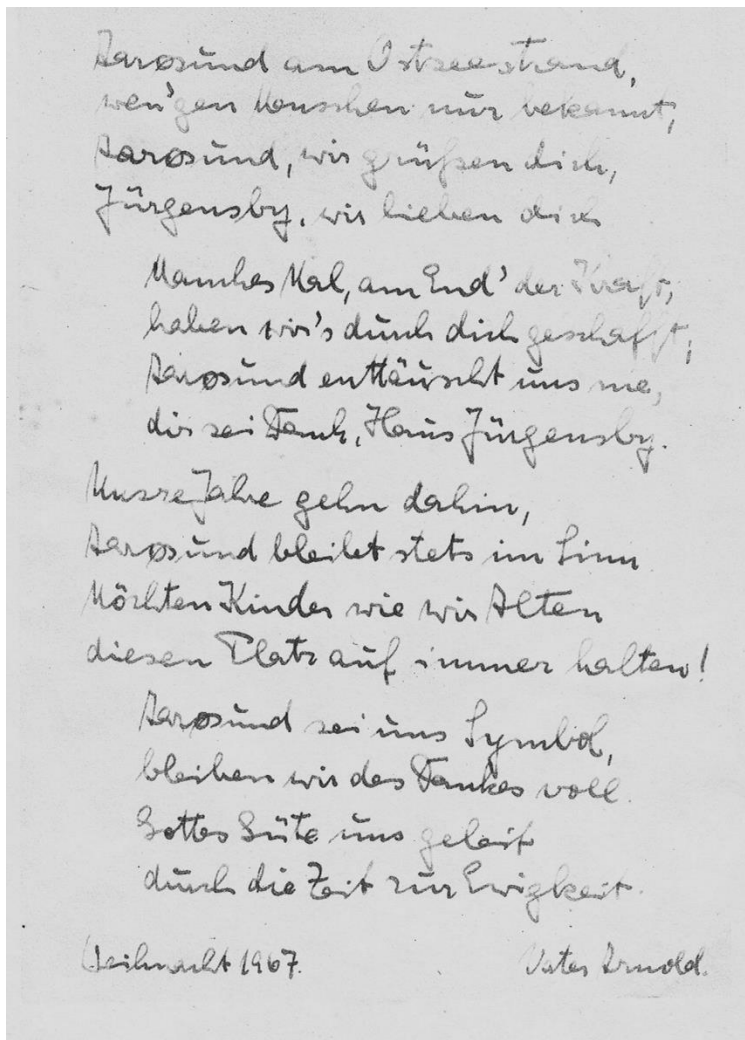 Aarøsund am Ostseestrand,
wen'gen Menschen nur bekannt,
Aarøsund, wir grüßen dich,
Jürgensby, wir lieben dich
Manches Mal, am End' der Kraft,
haben wir's durch dich geschafft,
Aarøsund enttäuscht uns nie,
dir sei Dank, Haus Jürgensby.
Unsre Jahre gehn dahin,
Aarøsund bleibt stets im Sinn
Möchten Kinder wie wir Alten
diesen Platz auf immer halten!
Aarøsund sei uns Symbol,
bleiben wir des Dankes voll.
Gottes Güte uns geleit
durch die Zeit zur Ewigkeit.
Weihnacht 1967. Vater Arnold.